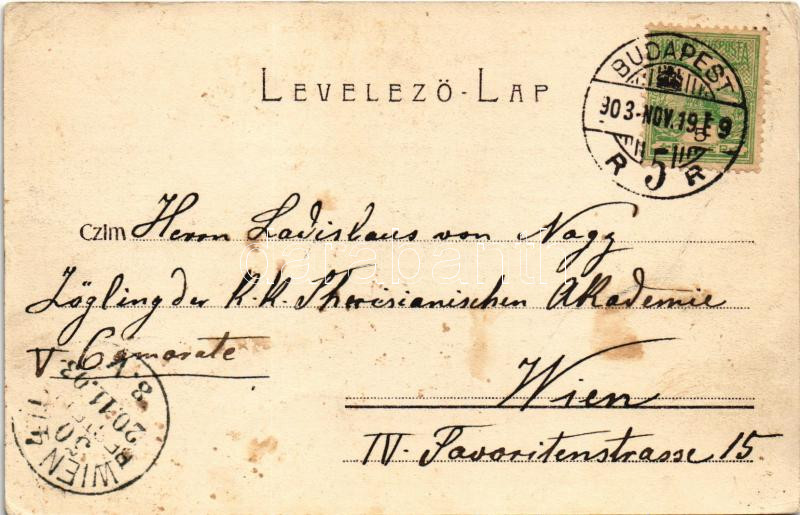 LEVELEZŐ-LAP
POSTA
BUDAPEST
903-NOV.19 É 9
R 5 R
Czim Herrn Ladislaus von Nagy
Zögling der K.K. Theresianischen Akademie
V. Camarate
Wien
IV. Favoritenstrasse 15
WIEN 4/1
30
20.11.03
8.V
darabanth